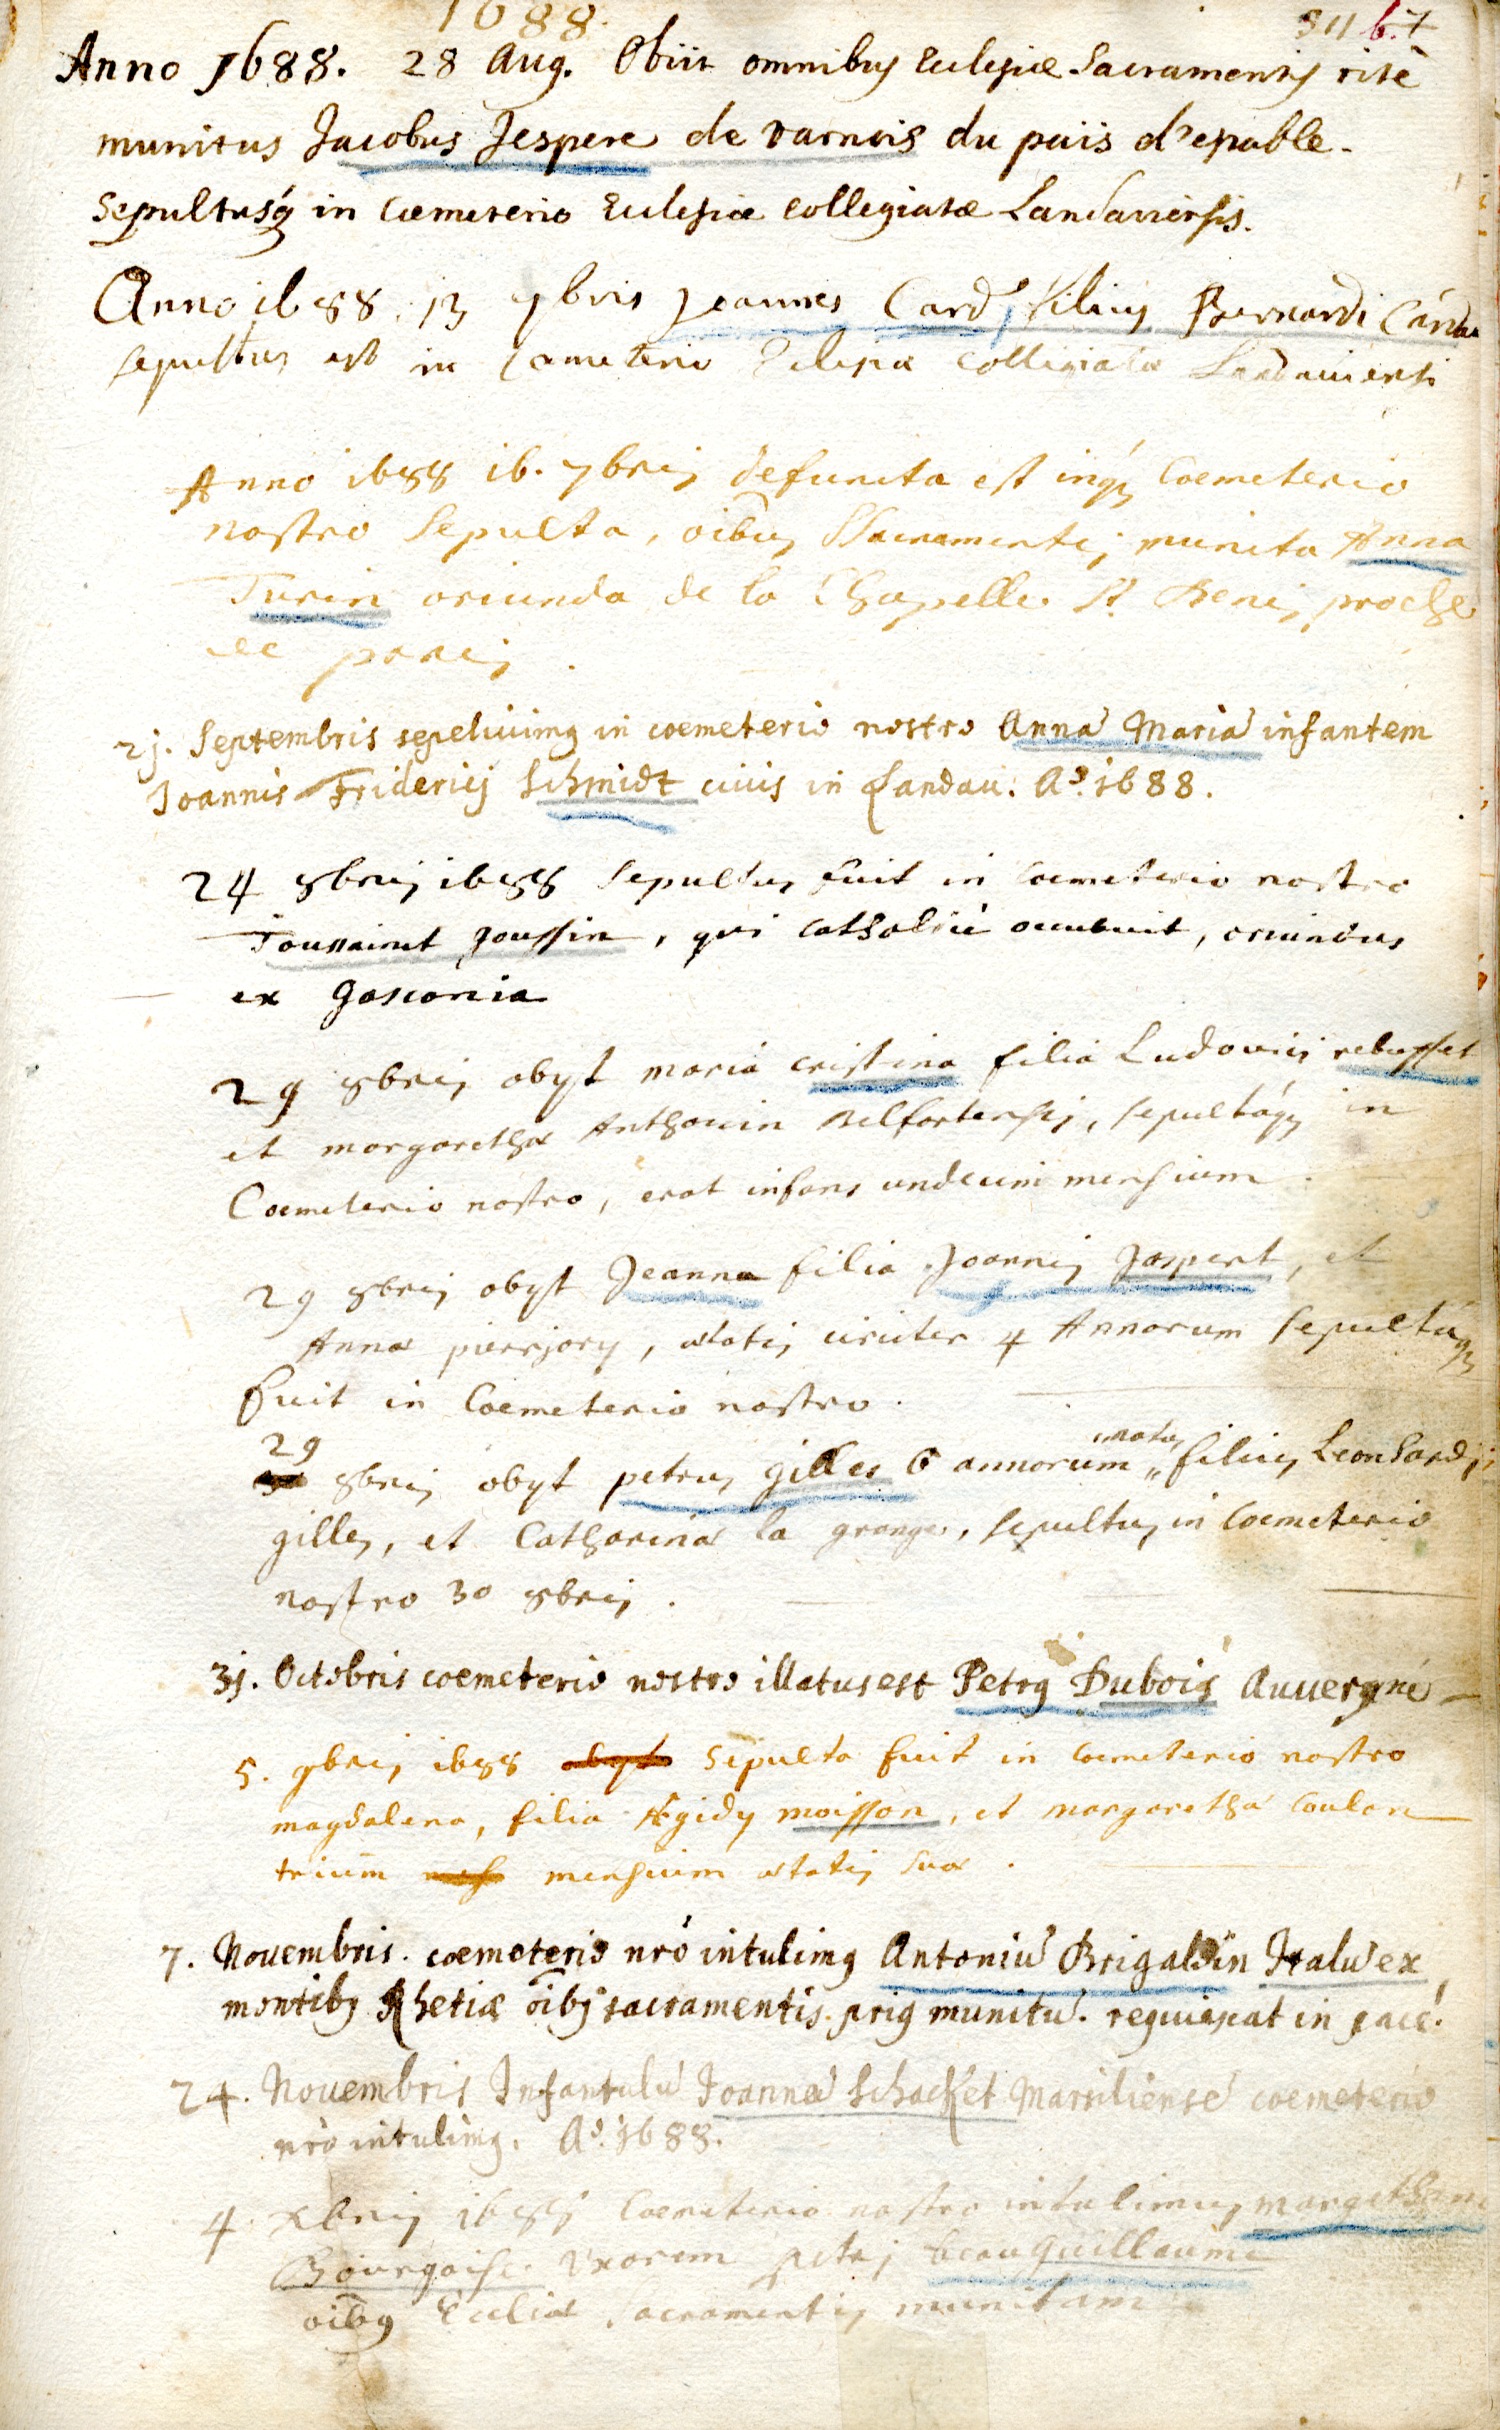 1688.
Anno 1688. 28 Aug. Obiit omnibus Eclesiæ Sacramentis ritè
munitus Jacobus Jespere de varnois du païis d'epable.
Sepultusq in cœmeterio Eclesiæ collegiatæ Landaviensis.
Anno 1688. 13 7bris Joannes Card, filius Bernardi Card
sepultus est in Cemeterio Eclesiæ Collegiatæ Landaviensi
Anno 1688 16. 7bris defuncta est inq Coemeterio
nostro Sepulta, oibus SSacramentis munita Anna
Turin oriunda de la Chapelle St Denis proche
de paris.
21. Septembris sepelivimq in coemeterio nostro Anna Maria infantem
Joannis Friderici Schmidt civis in Landau. Ao. 1688.
24 8bris 1688 Sepultus fuit in Coemeterio nostro
Toussaint poussin, qui catholicè occubuit, oriundus
ex Gasconia
29 8bris obyt maria cristina filia Ludovici rebusset
et margarethæ Anthonin Belfortensis, sepultáq in
Coemeterio nostro, erat infans undecim mensium.
29 8bris obyt Jeanna filia Joannis Jaspert, et
Annæ pierrjory, ætatis circiter 4 Annorum Sepultáq
fuit in Coemeterio nostro.
29
8bris obyt petrus gilles 6 annorum natus filius Leonhardi
gilles, et Catharinæ la grange, sepultus in Coemeterio
nostro 30 8bris.
31. Octobris coemeterio nostro illatus est Petrq Dubois Auvergne
5. 9bris 1688 obyt Sepulta fuit in coemeterio nostro
magdalena, filia Ægidy moisson, et margarethæ Coulon
trium mensium ætatis suæ.
7. Novembris. coemeterio nrò intulimq Antoniu Brigaldin Italu ex
montibq Rhetiæ oibq sacramentis priq munitu. requiescat in pace.
24. Novembris Infantulu Joanna Schacket Marsiliense coemeterio
nrò intulimq. Ao. 1688.
4 Xbris 1688 Coemeterio nostro intulimus margetham
Bourgoise Uxorem petri beauguillaume
oibq Eccliæ sacramentis munitam